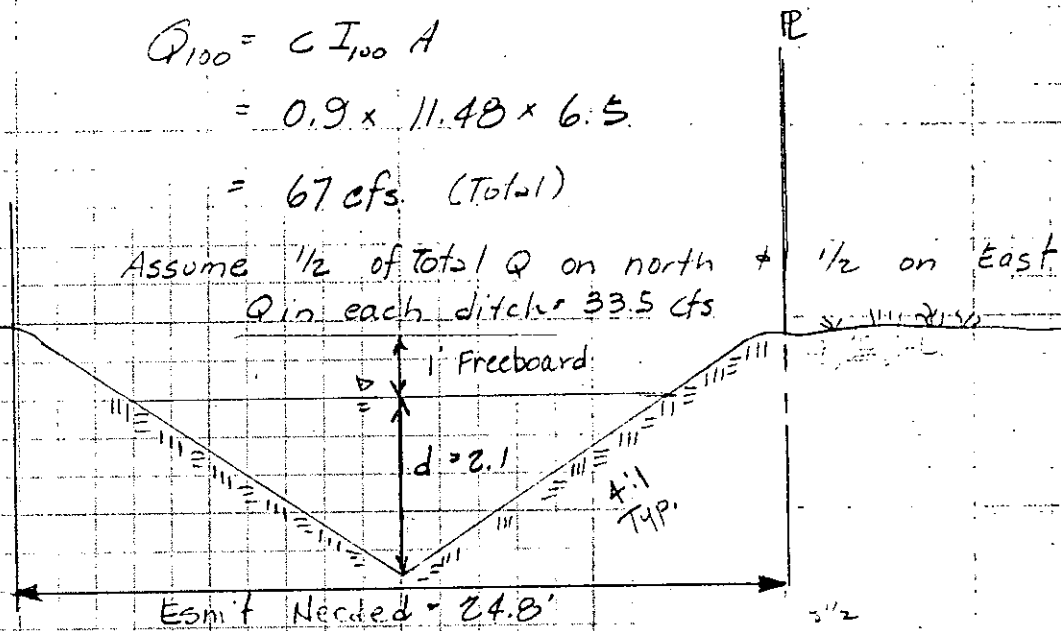 Q₁₀₀ = C I₁₀₀ A
= 0.9 x 11.48 x 6.5
= 67 cfs. (Total)
PL
Assume 1/2 of Total Q on north & 1/2 on East
Q in each ditch = 33.5 cfs
1' Freeboard
d = 2.1
4:1
TYP.
Esm't Needed = 24.8'